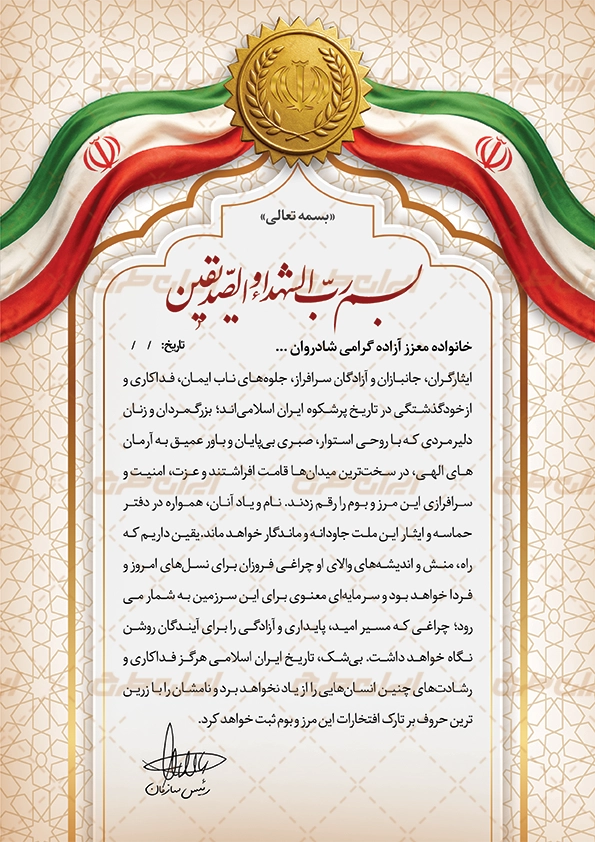 «بسمه تعالی»
بسم ربّ الشهداء و الصّدیقین
خانواده معزز آزاده گرامی شادروان ... تاریخ: / /
ایثارگران، جانبازان و آزادگان سرافراز، جلوه‌های ناب ایمان، فداکاری و
ازخودگذشتگی در تاریخ پرشکوه ایران اسلامی‌اند؛ بزرگمردان و زنان
دلیرمردی که با روحی استوار، صبری بی‌پایان و باور عمیق به آرمان
های الهی، در سخت‌ترین میدان‌ها قامت افراشتند و عزت، امنیت و
سرافرازی این مرز و بوم را رقم زدند. نام و یاد آنان، همواره در دفتر
حماسه و ایثار این ملت جاودانه و ماندگار خواهد ماند. یقین داریم که
راه، منش و اندیشه‌های والای او چراغی فروزان برای نسل‌های امروز و
فردا خواهد بود و سرمایه‌ای معنوی برای این سرزمین به شمار می
رود؛ چراغی که مسیر امید، پایداری و آزادگی را برای آیندگان روشن
نگاه خواهد داشت. بی‌شک، تاریخ ایران اسلامی هرگز فداکاری و
رشادت‌های چنین انسان‌هایی را از یاد نخواهد برد و نامشان را با زرین
ترین حروف بر تارک افتخارات این مرز و بوم ثبت خواهد کرد.
رئیس سازمان
ایران طرح